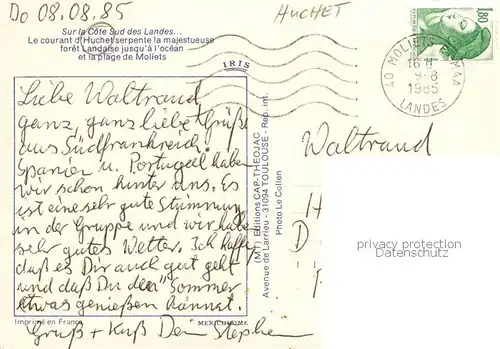 Do 08.08.85
HUCHET
Sur la Côte Sud des Landes...
Le courant d'Huchet serpente la majestueuse
forêt Landaise jusqu'à l'océan
et la plage de Moliets
IRIS
1,80
40 MOLIETS MAA
16 H
8-8
1985
LANDES
Liebe Waltraud
ganz, ganz liebe Grüße
aus Südfrankreich.
Spanien u. Portugal haben
wir schon hinter uns. Es
ist eine sehr gute Stimmung
in der Gruppe und wir haben
sehr gutes Wetter. Ich hoffe,
daß es Dir auch gut geht
und daß Du den Sommer
etwas genießen kannst.
Gruß + Kuß Dein Stephan
(MT) Editions CAP-THEOJAC
Avenue de Larrieu - 31094 TOULOUSE - Rep. Int.
Photo Le Collen
Waltraud
H
D
privacy protection
Datenschutz
Imprimé en France
MEXICHROME